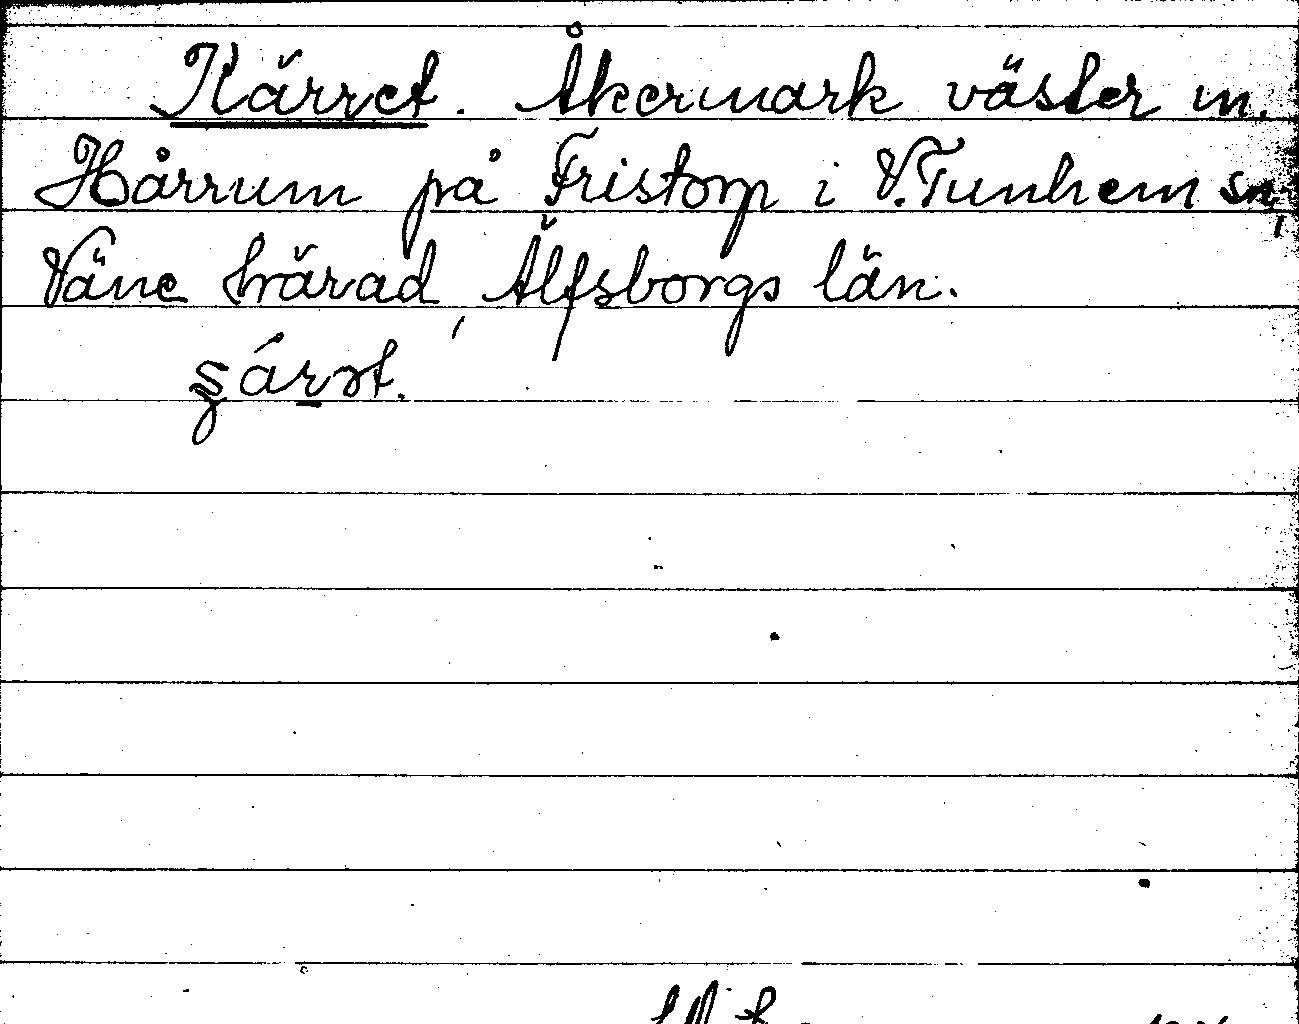 Kärret. Åkermark väster m.
Hårrum på Fristorp i V.Tunhem sn,
Väne härad, Älfsborgs län.